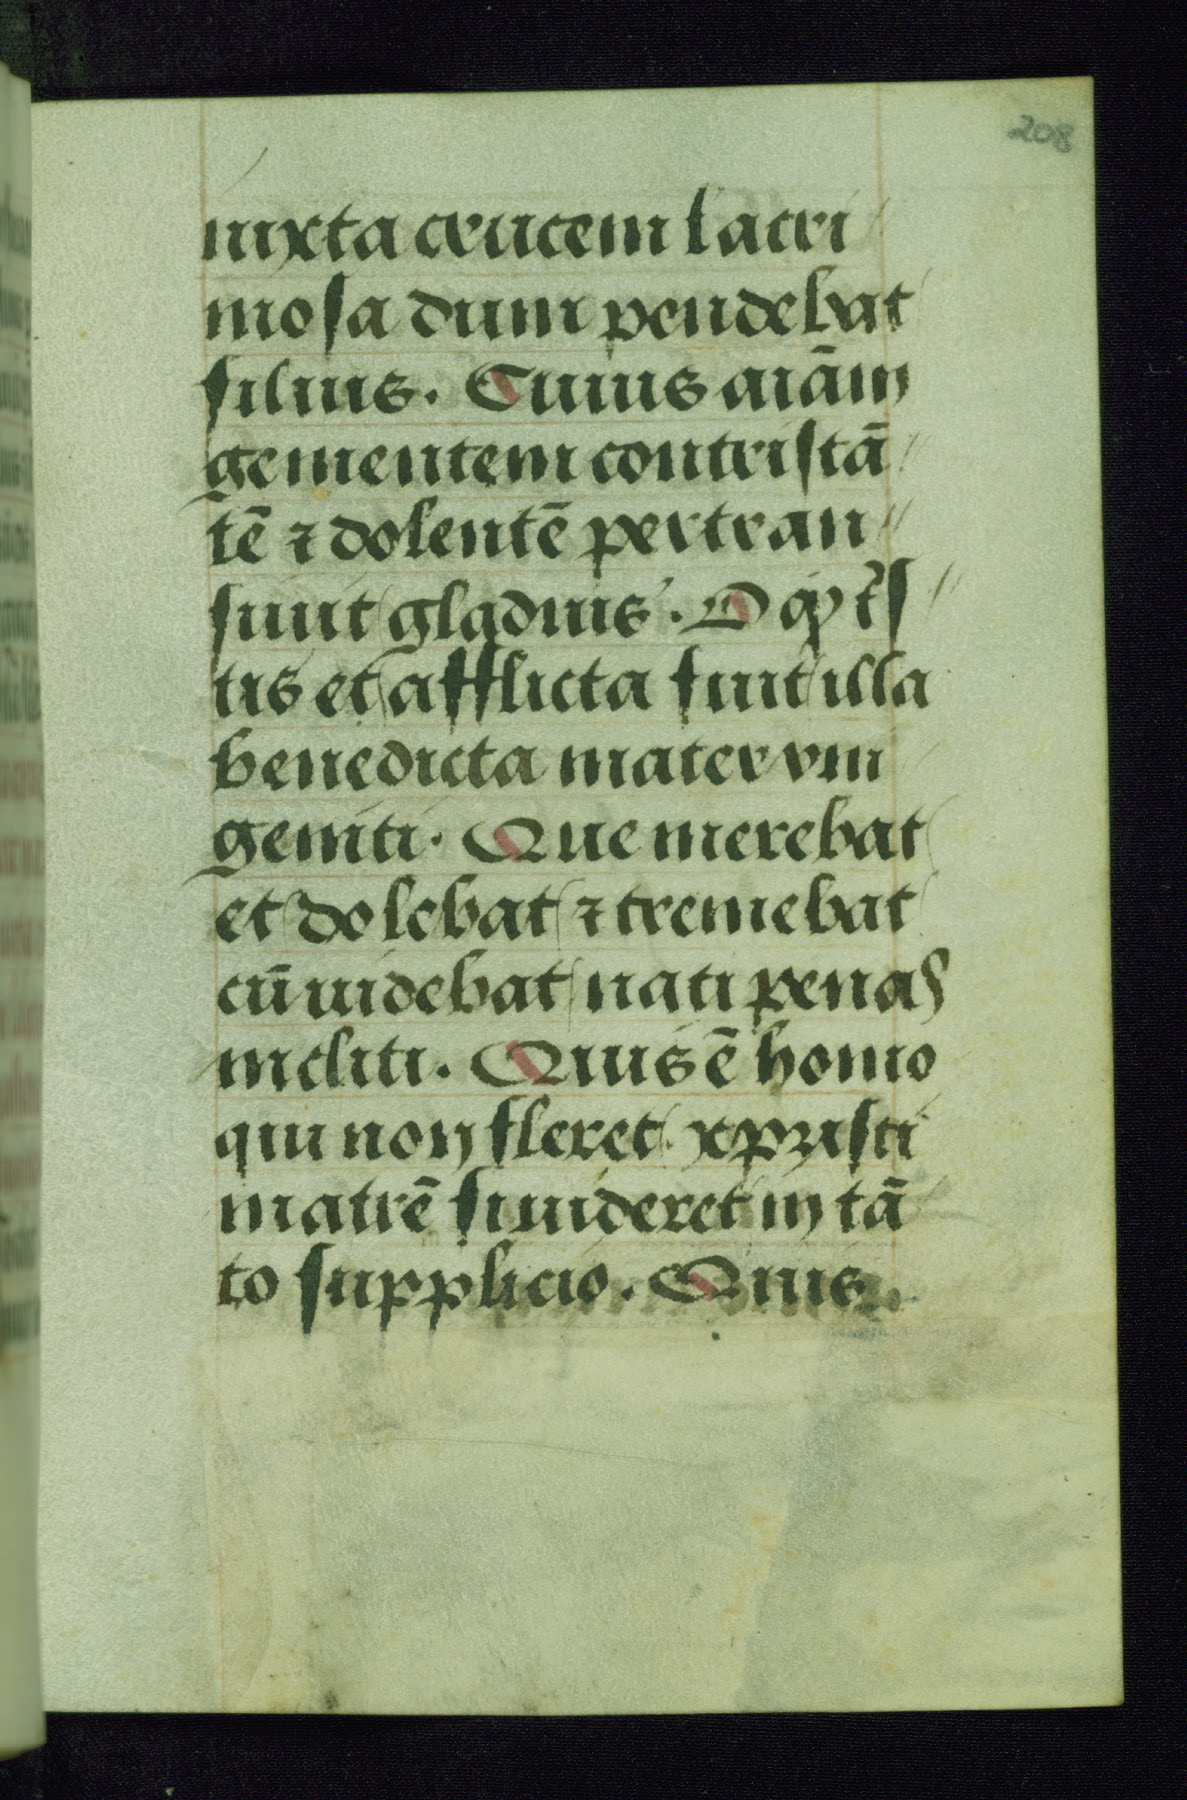 208
iuxta crucem lacri
mosa dum pendebat
filius. Cuius aīam
gementem contristā
tē ⁊ dolentē pertran
siuit gladius. O q̄ t̄s
tis et afflicta fuit illa
benedicta mater vni
geniti. Que merebat
et dolebat ⁊ tremebat
cū uidebat nati penas
incliti. Quis ē homo
qui non fleret xpristi
matrē si uideret in tā
to supplicio. Quis